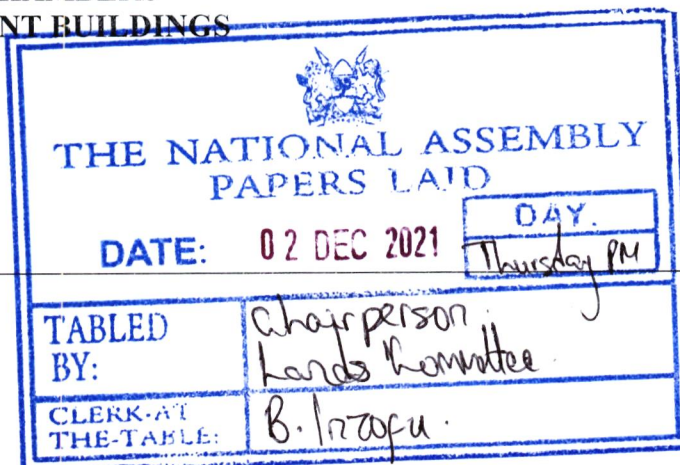 NT BUILDINGS
THE NATIONAL ASSEMBLY
PAPERS LAID
DATE: 02 DEC 2021
DAY.
Thursday PM
TABLED BY:
Chairperson
Lands Committee
CLERK-AT THE-TABLE:
B. Inzofu.